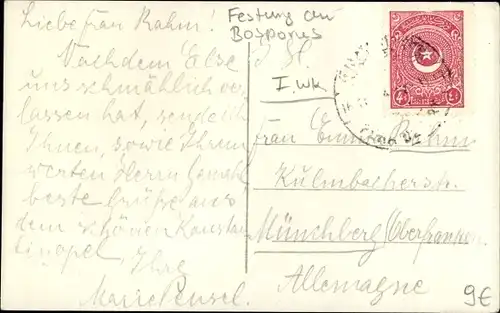 Liebe Frau Rahm!
Nachdem Else
uns schmählich ver-
lassen hat, sende ich
Ihnen, sowie Ihrem
werten Herrn Gemahl
beste Grüße aus
dem schönen Konstan-
tinopel, Ihre
Marie Pensel.
Festung am
Bosporus
I. WK
Frau Emma Rahm
Kulmbacherstr.
Münchberg (Oberfranken
Allemagne
9€